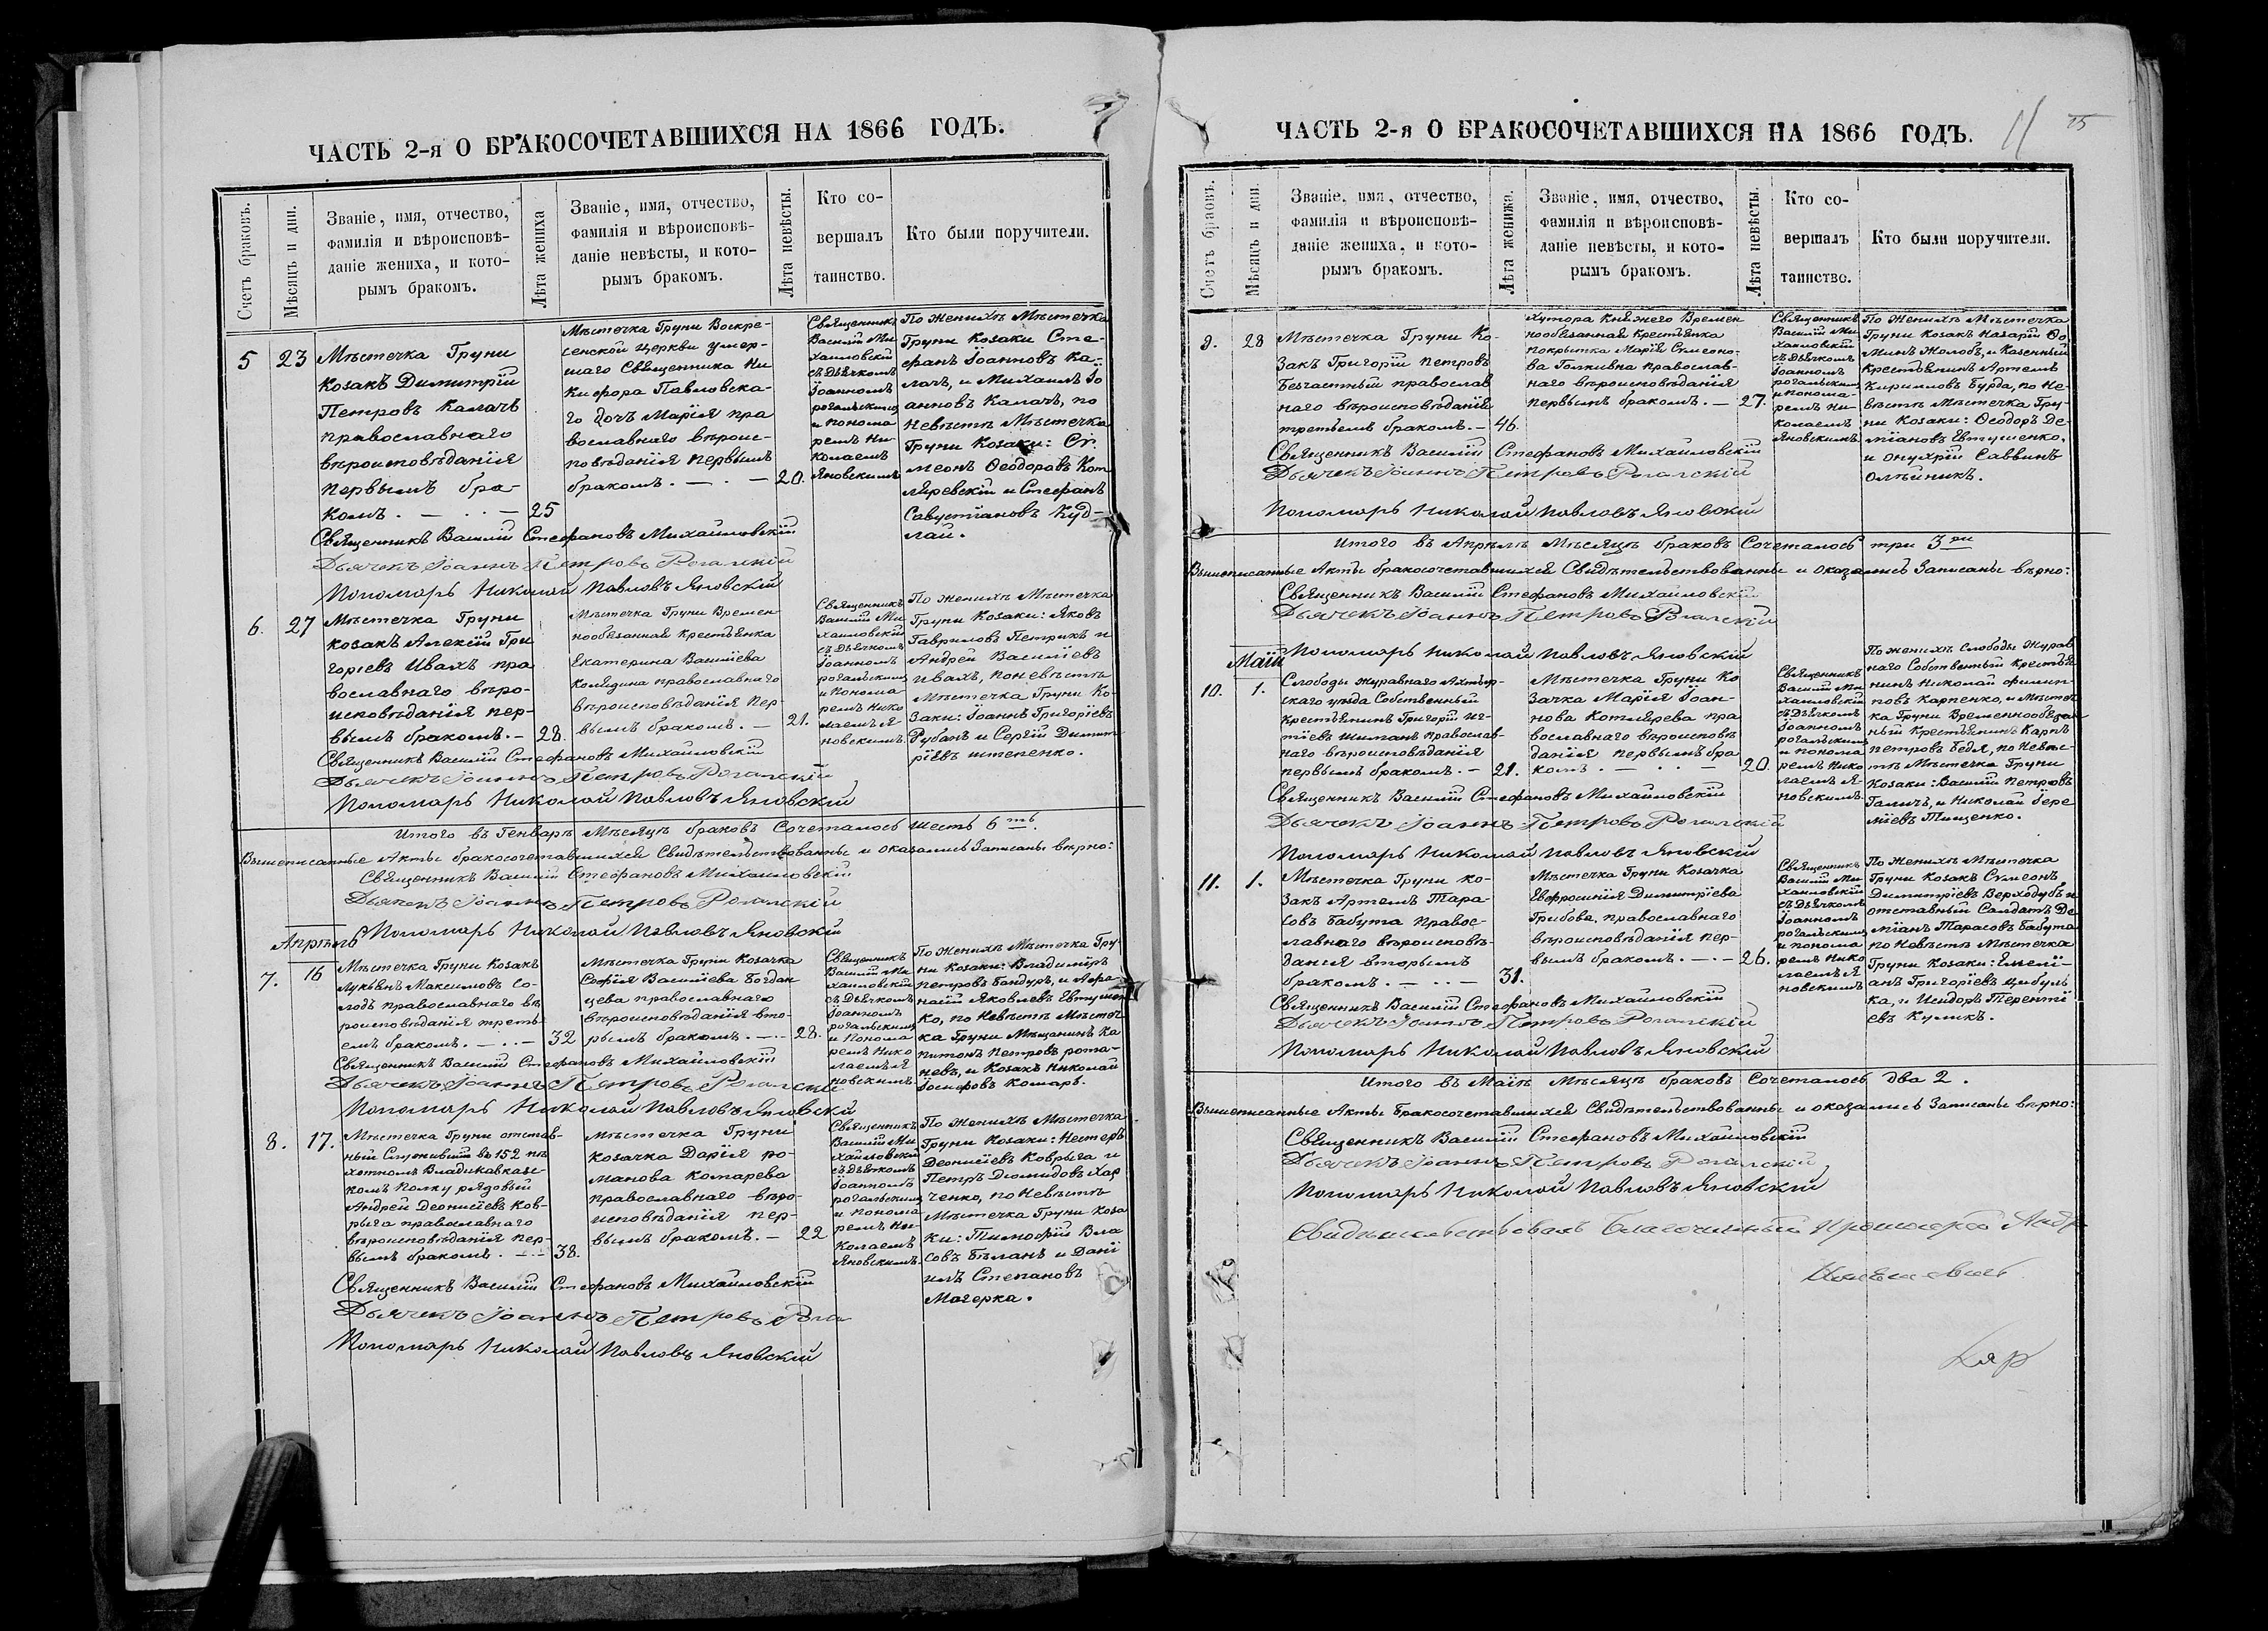 ЧАСТЬ 2-я О БРАКОСОЧЕТАВШИХСЯ НА 1866 ГОДЪ.
Счетъ браковъ.
Мѣсяцъ и дни.
Званіе, имя, отчество,
фамилія и вѣроисповѣ-
даніе жениха, и кото-
рымъ бракомъ.
Лѣта жениха
Званіе, имя, отчество,
фамилія и вѣроисповѣ-
даніе невѣсты, и кото-
рымъ бракомъ.
Лѣта невѣсты.
Кто со-
вершалъ
таинство.
Кто были поручители.
5
23
Мѣстечка Груни
Козакъ Димитрій
Петровъ Калачъ
православнаго
вѣроисповѣданія
первымъ бра-
комъ. —
25
Мѣстечка Груни Воскре-
сенской Церкви умер-
шаго Священника Ни
Кифора Павловска-
го дочъ Марія пра
вославнаго вѣроис-
повѣданія первымъ
бракомъ. —
20.
Священникъ
Василій Ми
хаиловскій
съ Дьячкомъ
Іоанномъ
рогальскимъ
и понома
ремъ Ни-
колаемъ
Яновскимъ
По женихѣ Мѣстечка
Груни Козаки Сте-
фанъ Іоанновъ Ка-
лачъ, и Михаилъ Іо
анновъ Калачъ, по
Невѣстѣ Мѣстечка
Груни Козаки: Сѵ-
меонъ Ѳеодоровъ Кот
ляревскій и Стефанъ
Савустіановъ Куд-
лай.
Священникъ Василій Стефановъ Михаиловскій
Дьячекъ Іоаннъ Петровъ Рогалскій
Пономарь Николай Павловъ Яновскій
6.
27
Мѣстечка Груни
козакъ Алексій Гри
горіевъ Ивахъ пра
вославнаго вѣро-
исповѣданія пер-
вымъ бракомъ. —
28.
Мѣстечка Груни Времен
нообязанная крестьянка
Екатерина Василіева
Колядина православнаго
вѣроисповѣданія пер-
вымъ бракомъ. —
21.
Священникъ
Василій Ми
хаиловскій
съ Дьячкомъ
Іоанномъ
рогальскимъ
и понома
ремъ Нико
лаемъ Я
новскимъ.
По женихѣ Мѣстечка
Груни Козаки: Яковъ
Гавриловъ Петрикъ и
Андрей Василіевъ
Ивахъ, по невѣстѣ
Мѣстечка Груни Ко
заки: Іоаннъ Григоріевъ
Рубанъ и Сергій Димит
ріевъ Штепенко.
Священникъ Василій Стефановъ Михаиловскій
Дьячекъ Іоаннъ Петровъ Рогалскій
Пономарь Николай Павловъ Яновскій
Итого въ Генварѣ Мѣсяцѣ браковъ Сочеталось шесть 6 ть.
Вышеписанные Акты бракосочетавшихся Свидѣтельствованны и оказались Записаны вѣрно:
Священникъ Василій Стефановъ Михаиловскій
Дьячекъ Іоаннъ Петровъ Рогалскій
Пономарь Николай Павловъ Яновскій
Апрѣль
7.
16
Мѣстечка Груни Козакъ
Лукьянъ Максимовъ Со-
лодъ православнаго вѣ
роисповѣданія треть-
емъ бракомъ. —
32
Мѣстечка Груни Козачка
Софія Василіева Богдан
цева православнаго
вѣроисповѣданія вто-
рымъ бракомъ. —
28.
Священникъ
Василій Ми
хаиловскій
съ Дьячкомъ
Іоанномъ
рогальскимъ
и понома
ремъ Нико
лаемъ Я
новскимъ.
По женихѣ Мѣстечка Гру-
ни Козаки: Владиміръ
Петровъ Бандуръ, и Афа
насій Яковлевъ Евтушен
ко, по Невѣстѣ Мѣстеч
ка Груни Мѣщанинъ Ка
питонъ Петровъ рома-
невъ, и Козакъ Николай
Іосифовъ Комаръ.
Священникъ Василій Стефановъ Михаиловскій
Дьячекъ Іоаннъ Петровъ Рогалскій
Пономарь Николай Павловъ Яновскій
8.
17.
Мѣстечка Груни отстав-
ный Служившій въ 152 пѣ
хотномъ Владикавказс-
комъ Полку рядовый
Андрей Деонисіевъ Ков-
рыга православнаго
вѣроисповѣданія пер-
вымъ бракомъ. —
38.
Мѣстечка Груни
козачка Дарія ро-
манова Комарева
православнаго вѣро-
исповѣданія пер-
вымъ бракомъ. —
22
Священникъ
Василій Ми
хаиловскій
съ Дьячкомъ
Іоанномъ
рогальскимъ
и понома
ремъ Ни-
колаемъ
Яновскимъ.
По женихѣ Мѣстечка
Груни Козаки: Несторъ
Деонисіевъ Коврыга и
Петръ Діомидовъ Хар
ченко, по Невѣстѣ
Мѣстечка Груни Коза
ки: Тимофій Вла
совъ Бѣланъ и Дані
илъ Степановъ
Магерка.
Священникъ Василій Стефановъ Михаиловскій
Дьячекъ Іоаннъ Петровъ Рога
Пономарь Николай Павловъ Яновскій
ЧАСТЬ 2-я О БРАКОСОЧЕТАВШИХСЯ НА 1866 ГОДЪ.
11
15
Счетъ браовъ.
Мѣсяцъ и дни.
Званіе, имя, отчество,
фамилія и вѣроисповѣ-
даніе жениха, и кото-
рымъ бракомъ.
Лѣта женижа.
Званіе, имя, отчество,
фамилія и вѣроисповѣ-
даніе невѣсты, и кото-
рымъ бракомъ.
Лѣта невѣсты.
Кто со-
вершалъ
таинство.
Кто были поручители.
9.
28
Мѣстечка Груни Ко-
закъ Григорій Петровъ
Безчастный православ
наго вѣроисповѣданія
третьемъ бракомъ. —
46.
Хутора Княжнего Времен
нообязанная Крестьянка
покрытка Марія Сѵмеоно-
ва Голкивна православ-
наго вѣроисповѣданія
первымъ бракомъ. —
27.
Священникъ
Василій Ми-
хаиловскій
съ Дьячкомъ
Іоанномъ
рогальскимъ
и понома-
ремъ Ни-
колаемъ
Яновскимъ
По женихѣ Мѣстечка
Груни Козакъ Назарій Ѳо
минъ Жолобъ, и Казенный
крестьянинъ Артемъ
Кирилловъ Бурда, по Не-
вѣстѣ Мѣстечка Гру-
ни Козаки: Ѳеодоръ Де-
міановъ Евтушенко,
и Онуфрій Саввинъ
Олѣйникъ.
Священникъ Василій Стефановъ Михаиловскій
Дьячекъ Іоаннъ Петровъ Рогалскій
Пономарь Николай Павловъ Яновскій
Итого въ Апрѣлѣ Мѣсяцѣ браковъ Сочеталось три 3 ри
Вышеписанные Акты бракосочетавшихся Свидѣтельствованны и оказались Записаны вѣрно:
Священникъ Василій Стефановъ Михаиловскій
Дьячекъ Іоаннъ Петровъ Рогалскій
Пономарь Николай Павловъ Яновскій
Маій
10.
1.
Слободы Журавного Ахтыр-
скаго уѣзда Собственный
крестьянинъ Григорій Иг-
тіевъ Шипанъ Православ-
наго вѣроисповѣданія
первымъ бракомъ. —
21.
Мѣстечка Груни Ко
зачка Марія Іоан-
нова Котлярева пра
вославнаго вѣроисповѣ
данія первымъ бра
комъ. —
20.
Священникъ
Василій Ми-
хаиловскій
съ Дьячкомъ
Іоанномъ
рогальскимъ
и понома
ремъ Нико
лаемъ Я-
новскимъ.
По женихѣ Слободы Журав
наго Собственный крестья
нинъ Николай Филип-
повъ Карпенко, и Мѣстеч
ка Груни Временнообязан
ный Крестьянинъ Карпъ
Петровъ Бедя, по Невѣс-
тѣ Мѣстечка Груни
Козаки: Василій Петровъ
Галичъ, и Николай Іере
міевъ Тищенко.
Священникъ Василій Стефановъ Михаиловскій
Дьячекъ Іоаннъ Петровъ Рогалскій
Пономарь Николай Павловъ Яновскій
11.
1.
Мѣстечка Груни Ко-
закъ Артемъ Тара-
совъ Бабута Правос-
лавнаго вѣроисповѣ-
данія вторымъ
бракомъ. —
31.
Мѣстечка Груни Козачка
Евфросинія Димитріева
Грибова, православнаго
вѣроисповѣданія пер-
вымъ бракомъ. —
26.
Священникъ
Василій Ми-
хаиловскій
съ Дьячкомъ
Іоанномъ
рогальскимъ
и понома
ремъ Нико
лаемъ Я
новскимъ
По женихѣ Мѣстечка
Груни Козакъ Сѵмеонъ
Димитріевъ Верходубъ и
отставный Салдатъ Де
міанъ Тарасовъ Бабута
по Невѣстѣ Мѣстечка
Груни Козаки: Емелі-
анъ Григоріевъ Цыбуль
ка, и Исидоръ Теренті
евъ Куликъ.
Священникъ Василій Стефановъ Михаиловскій
Дьячекъ Іоаннъ Петровъ Рогалскій
Пономарь Николай Павловъ Яновскій
Итого въ Маіѣ Мѣсяцѣ браковъ Сочеталось два 2.
Вышеписанные Акты Бракосочетавшихся Свидѣтельствованны и оказались Записаны вѣрно:
Священникъ Василій Стефановъ Михаиловскій
Дьячекъ Іоаннъ Петровъ Рогалскій
Пономарь Николай Павловъ Яновскій
Свидѣтельствовалъ Благочинный